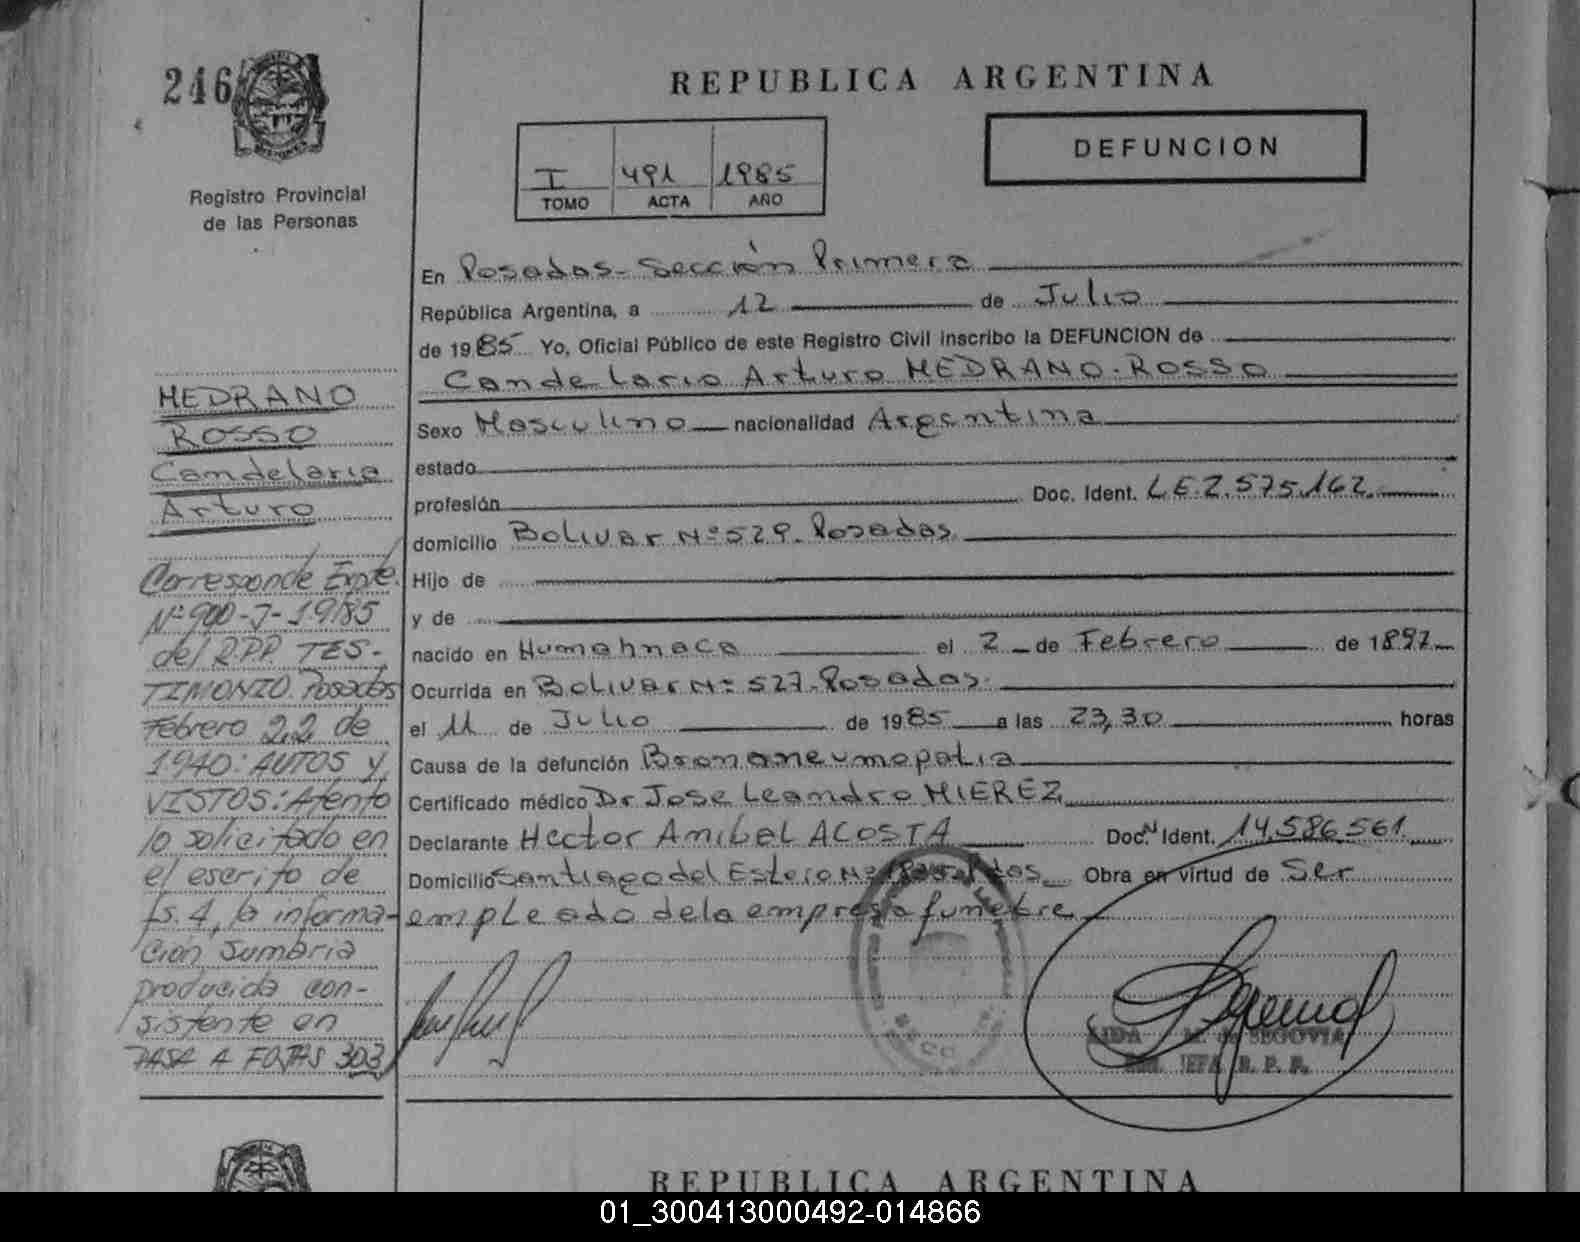 246
Registro Provincial
de las Personas
REPUBLICA ARGENTINA
I 491 1985
TOMO ACTA AÑO
DEFUNCION
En Posadas - Sección Primera
República Argentina, a 12 de Julio
de 1985 Yo, Oficial Público de este Registro Civil inscribo la DEFUNCION de
Candelario Arturo MEDRANO-ROSSO
Sexo Masculino nacionalidad Argentina
estado
profesión Doc. Ident. L.E. 2.575.162.
domicilio Bolivar Nº 529. Posadas.
Hijo de
y de
nacido en Humahuaca el 2 de Febrero de 1892
Ocurrida en Bolivar Nº 527. Posadas.
el 11 de Julio de 1985 a las 23,30 horas
Causa de la defunción Bronconeumopatia
Certificado médico Dr Jose Leandro MIEREZ
Declarante Hector Anibal ACOSTA Doc. N Ident. 14.586.561
Domicilio Santiago del Estero Nº Obra en virtud de Ser
empleado de la empresa funebre
LIDA M. de SEGOVIA
JEFA R. P. P.
MEDRANO
ROSSO
Candelario
Arturo
Corresponde Expte.
Nº 900-J-19/85
del R.P.P. TES-
TIMONIO. Posadas
Febrero 22 de
1940: AUTOS y
VISTOS: Atento
lo solicitado en
el escrito de
fs. 4, la informa-
ción sumaria
producida con-
sistente en
PASA A FOJAS 303
REPUBLICA ARGENTINA
01_300413000492-014866